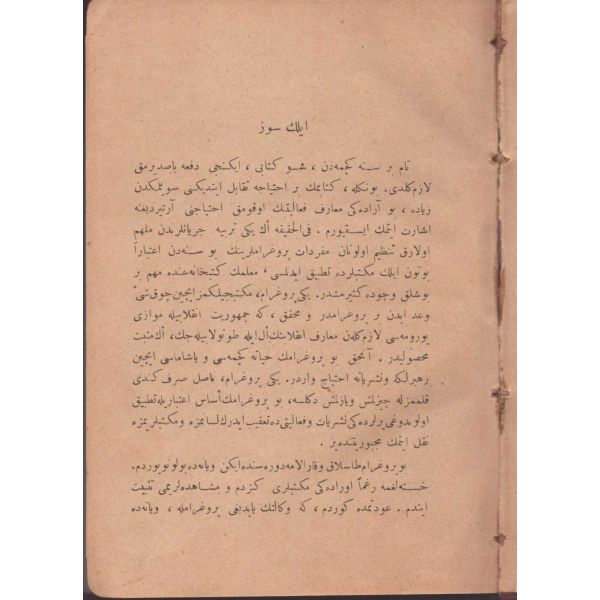 ایلك سوز
تام بر سنه كچمه‌دن ، شو كتابی ، ایكنجی دفعه باصدیرمق
لازم كلدی. بونكله ، كتابمك بر احتیاجه تقابل ایتدیكنی سویلمكدن
زیاده ، بو آراده‌كی معارف فعالیتنك اوقومق احتیاجنی آرتیردیغنه
اشارت ایتمك ایستیورم . فی‌الحقیقه اك یكی تربیه جریانلرندن ملهم
اولارق تنظیم اولونان مفردات پروغراملرینك بو سنه‌دن اعتباراً
بوتون ایلك مكتبلرده تطبیق ایدلمسی ، معلمك كتبخانه‌سنده مهم بر
بوشلق وجوده كتیرمشدر. یكی پروغرام، مكتبجیلكمز ایچین چوق شی‌ٔ
وعد ایدن بر پروغرامدر و محقق ، كه جمهوریت انقلابیله موازی
یورومه‌سی لازم كلن معارف انقلابنك أل ایله طوتولابیله‌جك، اك مثبت
محصولیدر . آنجق بو پروغرامك حیاته كچمه‌سی و یاشاماسی ایچین
رهبرلكه ونشریاته احتیاج واردر. یكی پروغرام، ناصل صرف كندی
قلممزله چیزلمش ویازلمش دكلسه، بو پروغرامك أساس اعتباریله تطبیق
اولوندوغی یرلرده‌كی نشریات وفعالیتی ده تعقیب ایدرك لسانمزه ومكتبلریمزه
نقل ایتمك مجبوریتنده‌یز .
بو پروغرام طاسلاق وقارالامه دوره‌سنده ایكن ویانه‌ده بولونویوردم.
خسته‌لغمه رغماً اوراده‌كی مكتبلری كزدم و مشاهده‌لریمی تثبیت
ایتدم . عودتمده كوردم ، كه وكالتك یاپدیغی پروغرامله ، ویانه‌ده